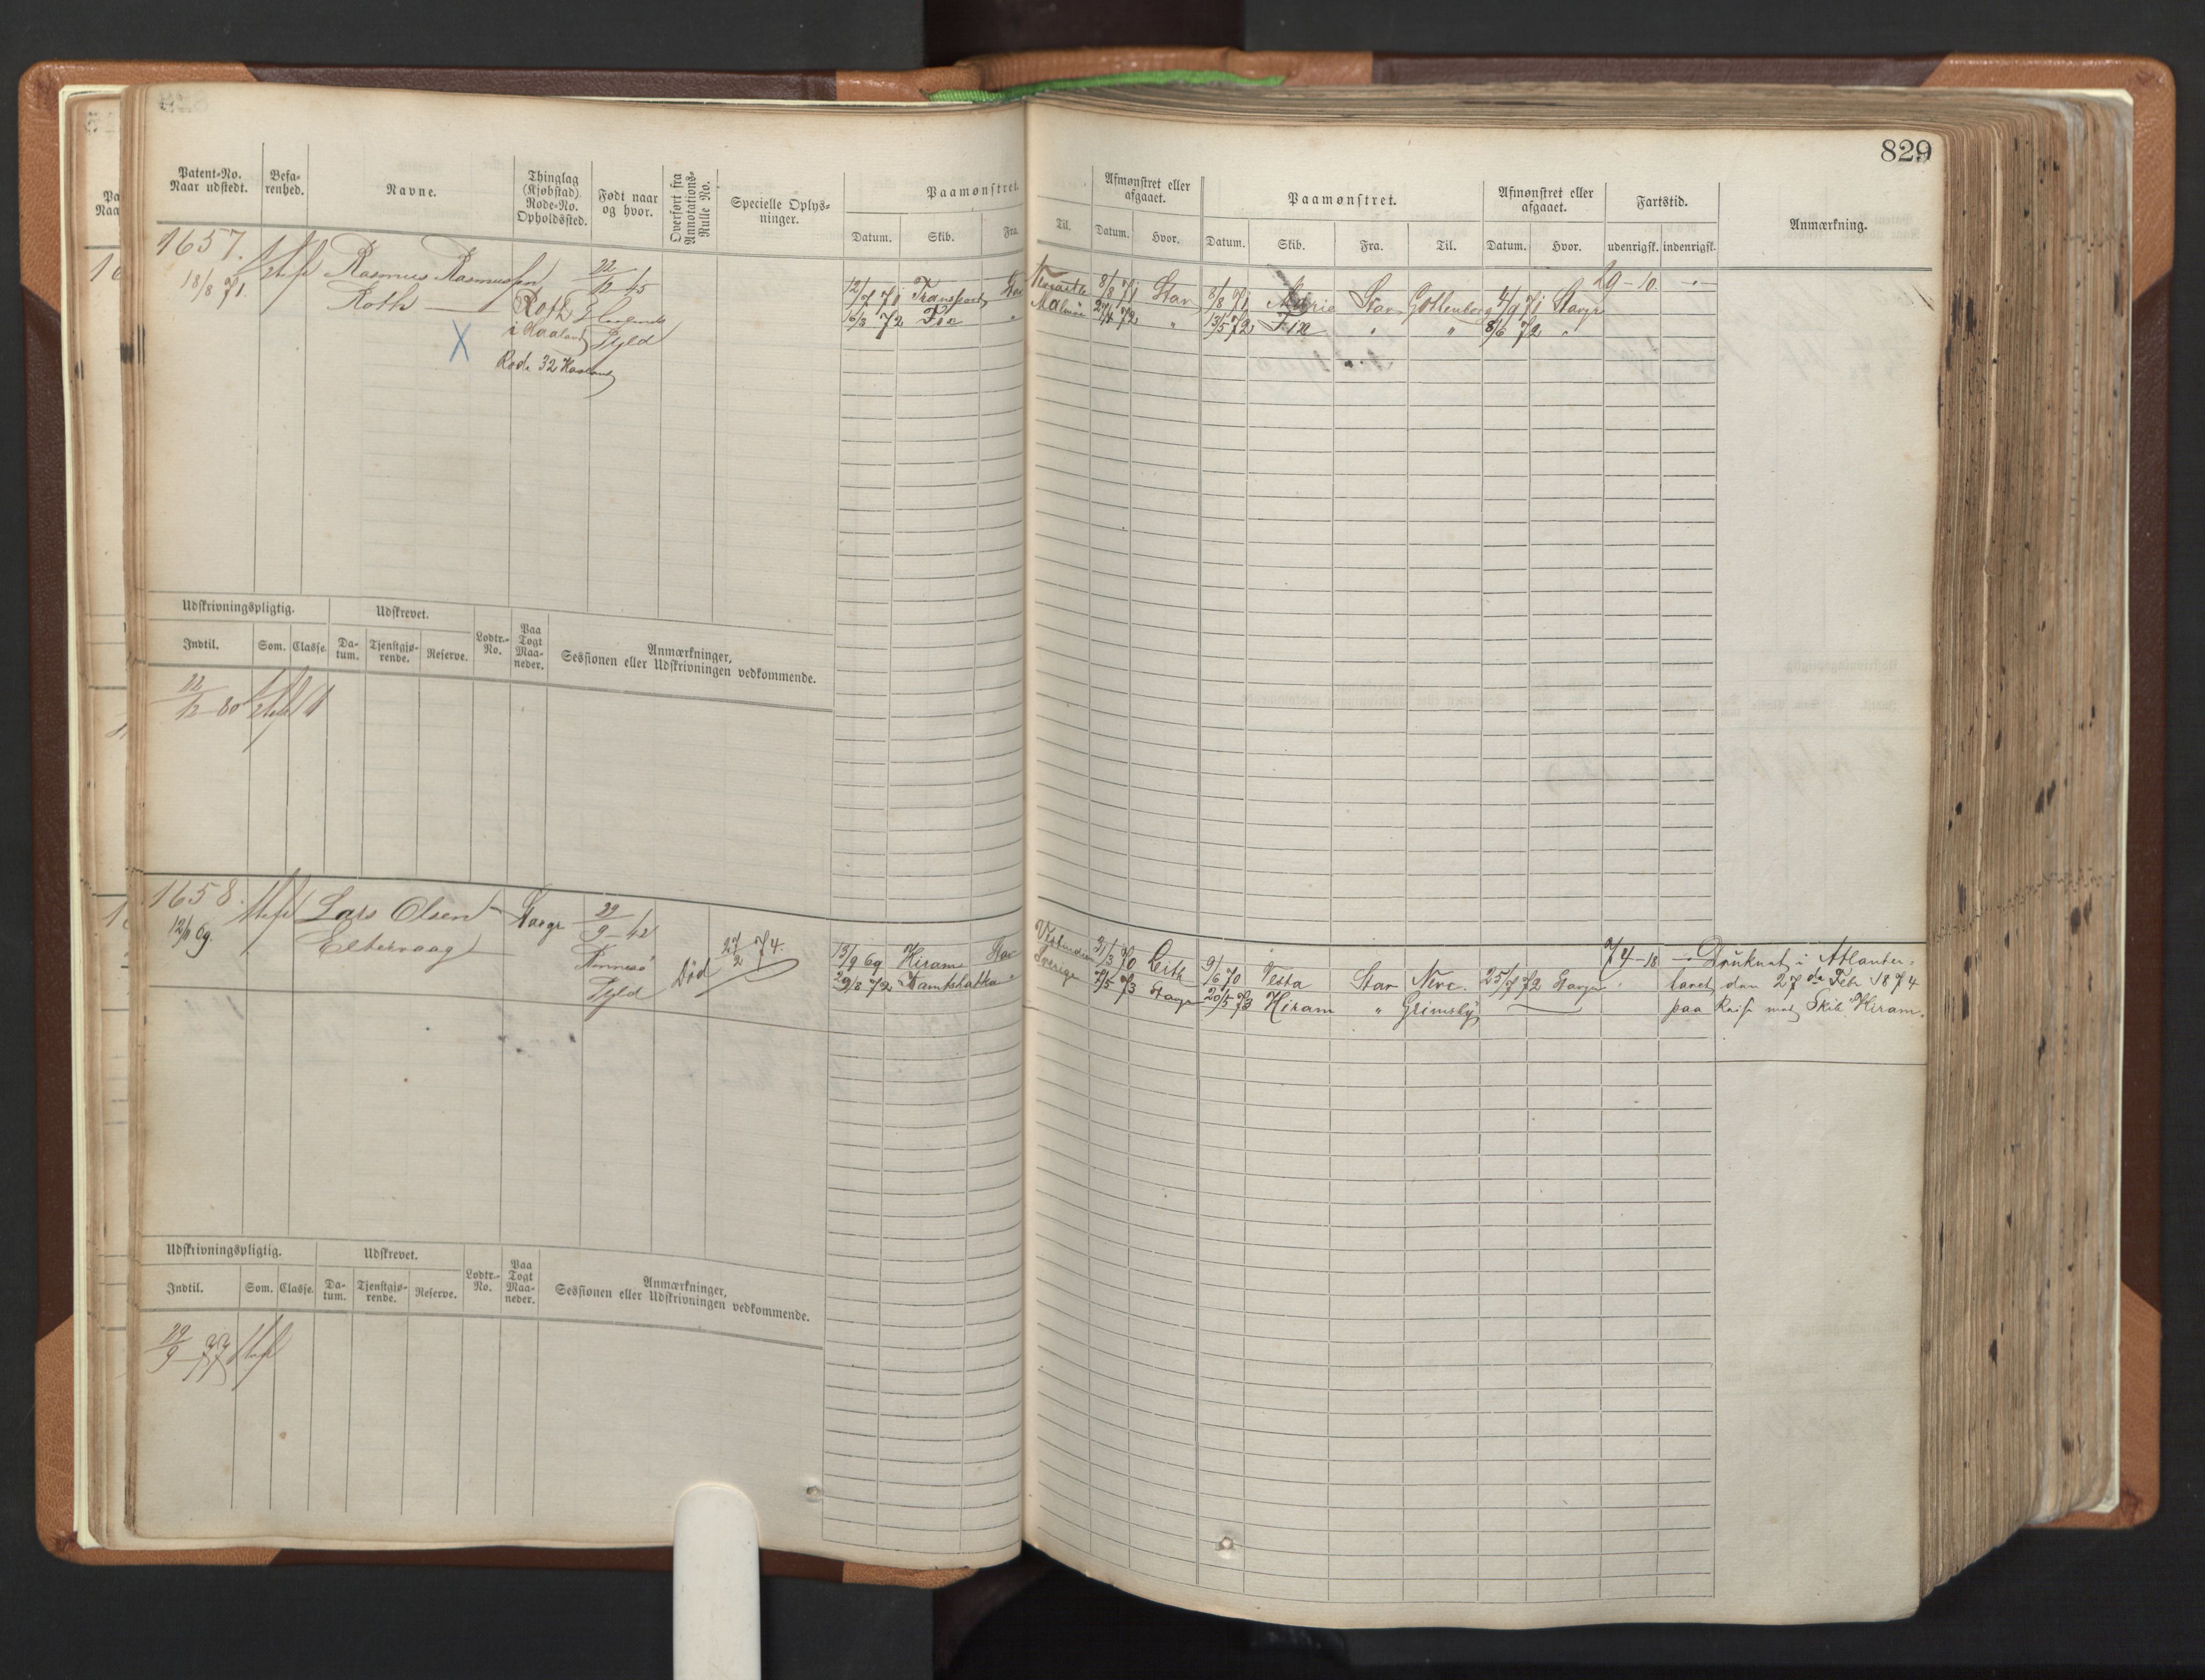 829
Patent-No.
Naar udstedt.
Befa-
renhed.
Navne.
Thinglag
(Kjøbstad).
Rode-No.
Opholdssted.
Født naar
og hvor.
Overført fra
Annotations-
Rulle No.
Specielle Oplys-
ninger.
Paamønstret.
Datum. Skib. Fra.
Til.
Afmønstret eller
afgaaet.
Datum. Hvor.
Paamønstret.
Datum. Skib. Fra. Til.
Afmønstret eller
afgaaet.
Datum. Hvor.
Fartstid.
udenrigsk. indenrigsk.
Anmærkning.
1657.
18/8 71.
Rasmus Rasmussen
Roth
Roth
i Haaland
Rode 32 Haaland
22/12 45
Fyld
X
12/7 71 Transport Stav
8/8 71 Stav 8/8 71 Maria Stav Gottenborg 4/9 71 Stavgr
29-10.
16/3 72 Fix "
Malmø 24/4 72 " 13/5 72 Fix " " 8/6 72 "
Udskrivningspligtig.
Udskrevet.
Indtil. Som. Classe.
Da-
tum.
Tjenstgjø-
rende.
Reserve.
Lodtr.-
No.
Paa
Togt
Maa-
neder.
Anmærkninger,
Sessionen eller Udskrivningen vedkommende.
22/12 80
1658.
12/11 69.
Lars Olsen
Eltervaag
Stavgr
29/9 42
Fyld
Død 27/2 74.
13/9 69 Hiram Stav
31/3 70 Leith 9/6 70 Vesta Stav Newc. 25/7 72 Stavgr
74-18
Druknet i Atlanter-
29/8 72 Kamtshatka "
Sverige 7/5 73 Stavgr 20/5 73 Hiram " Grimsby
havet den 27de Febr 1874
paa Reise med Skib "Hiram".
Udskrivningspligtig.
Udskrevet.
Indtil. Som. Classe.
Da-
tum.
Tjenstgjø-
rende.
Reserve.
Lodtr.-
No.
Paa
Togt
Maa-
neder.
Anmærkninger,
Sessionen eller Udskrivningen vedkommende.
29/9 77